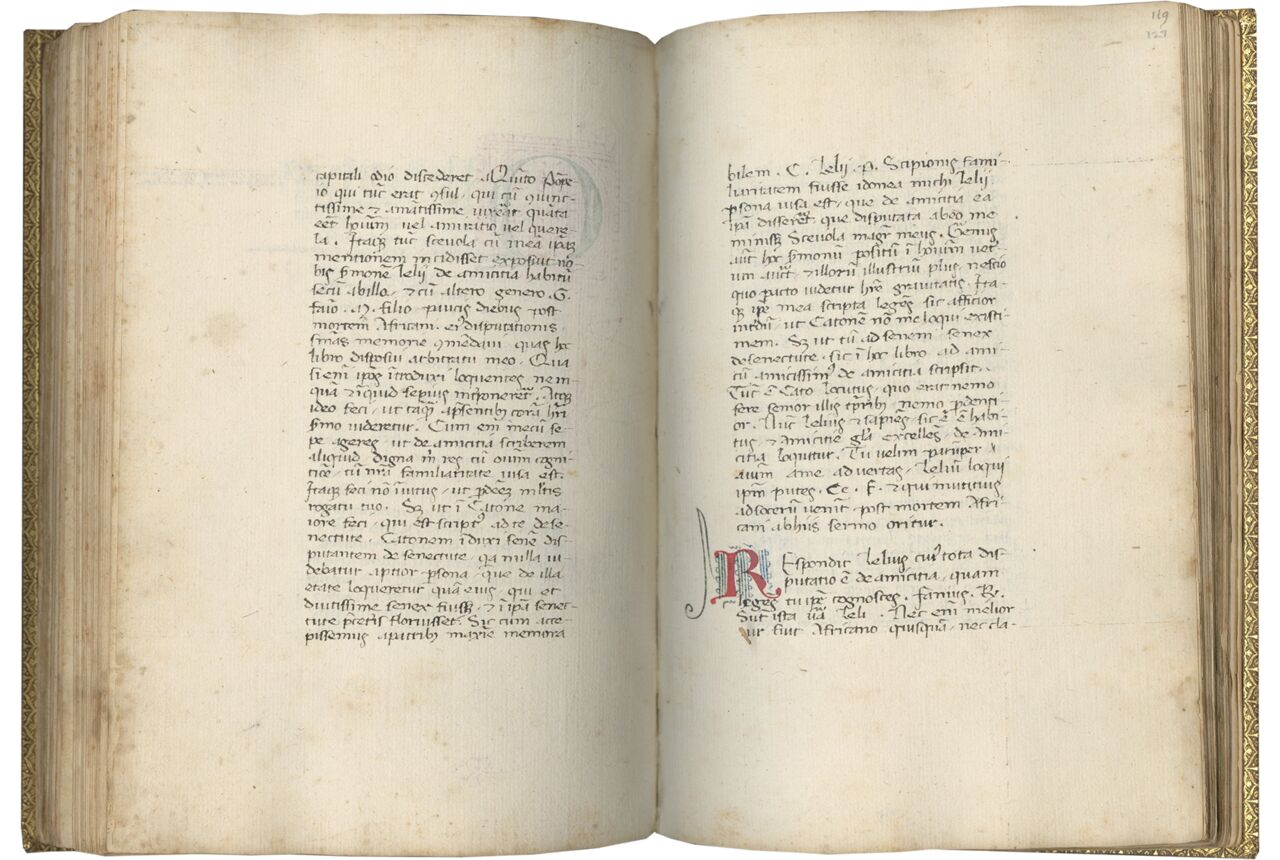 capitali odio discederet a Quīto Pōpe-
io qui tūc erat ꝯsul, qui cū ꝯiunc-
tissime ⁊ amatissime vixerat quāta
eēt hoīum vel amiratio vel quere-
la. Itaqꝫ tūc scevola cū mea ipaꝫ
mentionem incidisset exposuit no-
bis ẜmonē lelij de amicitia habitū
secū ab illo, ⁊ cū altero genero. G.
faūo. M. filio paucis diebus post
mortem Africani. eiꝰ disputationis
smās memorie ꝯmēdavi, quas hoc
libro disposui arbitratu meo. Qua
si enī ipos ītroduxi loquentes nem-
quā ⁊ īquid sepius intponeret. Atqꝫ
ideo feci ut taqꝫ apsentibꝫ corā hri
ẜmo videretur. Cum enī mecū se-
pe ageres, ut de amicitia scriberem
aliquid, digna m̄ res cū oium cogni-
tioe, tū nr̄a familiaritate visa est.
Itaqꝫ feci nō īvitus, ut ꝓdeēꝫ mltis
rogatu tuo. Sꝫ ut ī Catone ma-
iore feci, qui est scriptꝰ ad te de se-
nectute. Catonem īduxi senē dis-
putantem de senectute, qa nulla vi-
debatur aptior ꝑsona, que de illa
etate loqueretur quā eius, qui et
diutissime senex fuisꝫ, ⁊ ī ipā senec-
tute p̄ceteris floruisset. Sic cum acce-
pissemus a patribꝫ maxīe memora
119
127
bilem. C. lelij. P. Scipionis fami-
liaritatem fuisse idonea michi lelij
ꝑsona visa est, que de amicitia ea
ipā differet que disputata ab eo me
minisꝫ Scevola magr̄ meus. Genus
aūt hoc ẜmonū positū ī hoīum vet-
um auct. ⁊ illorū illustriū plus, nescio
quo pacto videtur hr̄e gravitatis. Ita-
qꝫ ip̄e mea scripta legēs sic afficior
intdū, ut Catonē nō me loqui existi-
mem. Sꝫ ut tū ad senem senex
de senectute, sic ī hoc libro ad ami-
cū amicissimꝰ de amicitia scripsi.
Tūc ē Cato locutus, quo erat nemo
fere senior illis tꝑribꝫ nemo prudenti-
or. Nūc lelius ⁊ sapiēs, sic ē ē habi-
tus, ⁊ amicitie gla excellēs, de ami-
citia loquitur. Tu velim parūper
aīum a me advertas, lelium loqui
ipm̄ putes. Ce. F. ⁊ qui mutius
ad socerū venīt post mortem Afri-
cani ab hiis sermo oritur.
REspondit lelius cuiꝰ tota dis-
putatio ē de amicitia, quam
legēs tu ip̄e cognosces. Fanius. R.
Sūt ista vā leli. Nec enī melior
vir fuit Africano quisquā, nec cla-